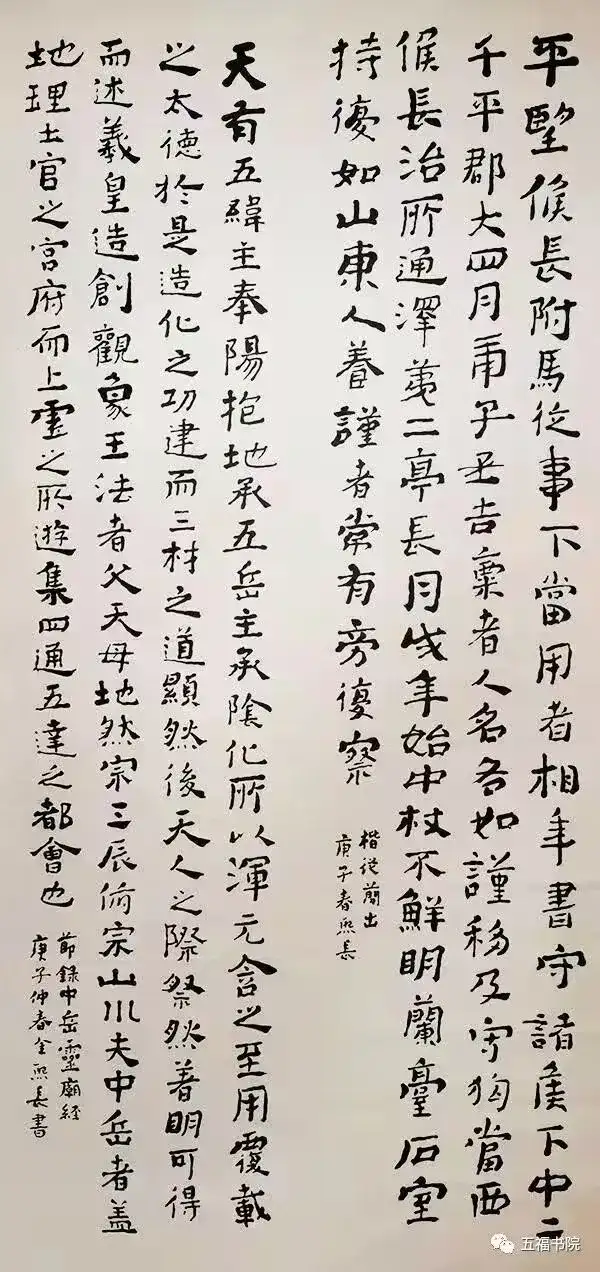 平望候長附馬從事下當用者相年書守諸侯下中二
千平郡大四月甭子丑吉稟者人名各如謹移及守狗當西
候長治所通澤第二亭長月戌年始中杖不鮮明蘭臺石室
持復如山東人養謹者常有旁復察
楷從簡出
庚子春熙長
天有五緯主奉陽抱地承五岳主承陰化所以渾元含之至用覆載
之太德於是造化之功建而三材之道顯然後天人之際祭然著明可得
而述羲皇造創觀象王法者父天母地然宗三辰俯宗山川夫中岳者蓋
地理土官之宮府而上靈之所遊集四通五達之都會也
節錄中岳靈廟經
庚子仲春金熙長書
五福书院